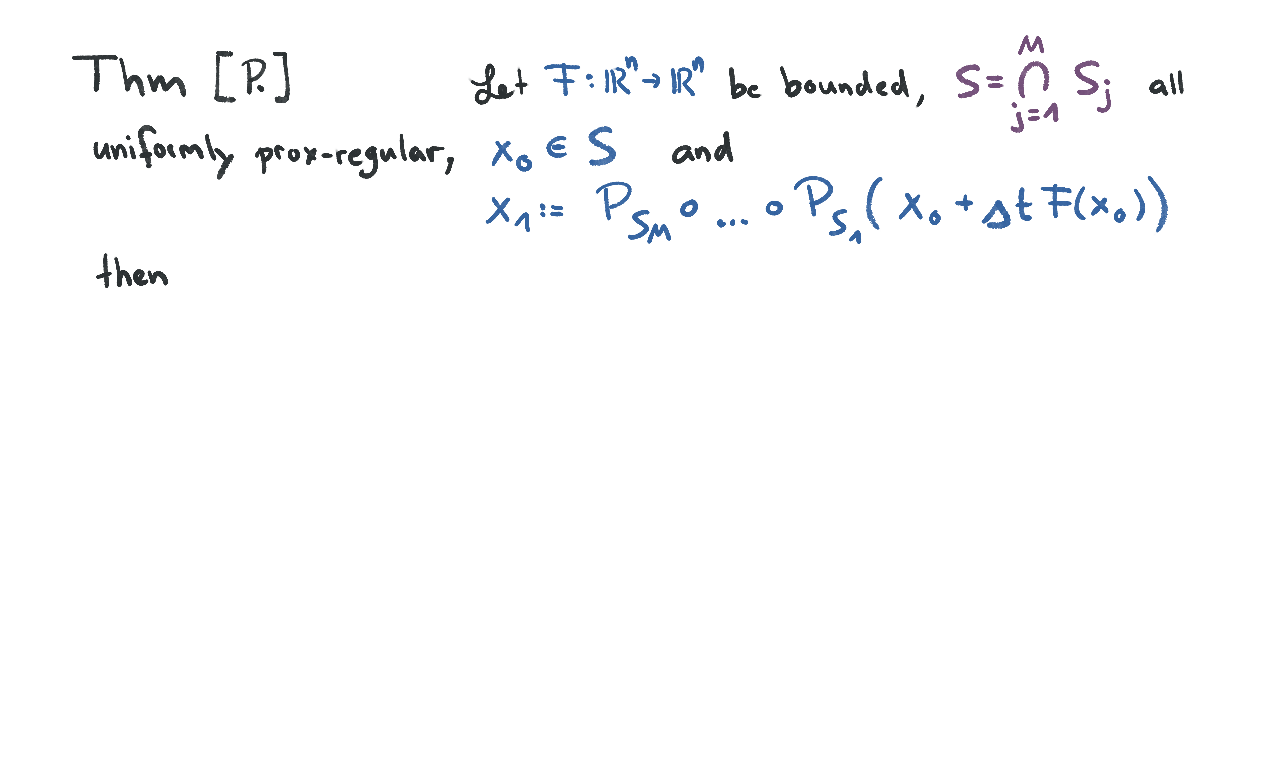 Thm [P.] Let F : ℝⁿ → ℝⁿ be bounded, S = ⋂_{j=1}^{M} S_j all
uniformly prox-regular, x₀ ∈ S and
x₁ := P_{S_M} ∘ ... ∘ P_{S_1}( x₀ + Δt F(x₀))
then